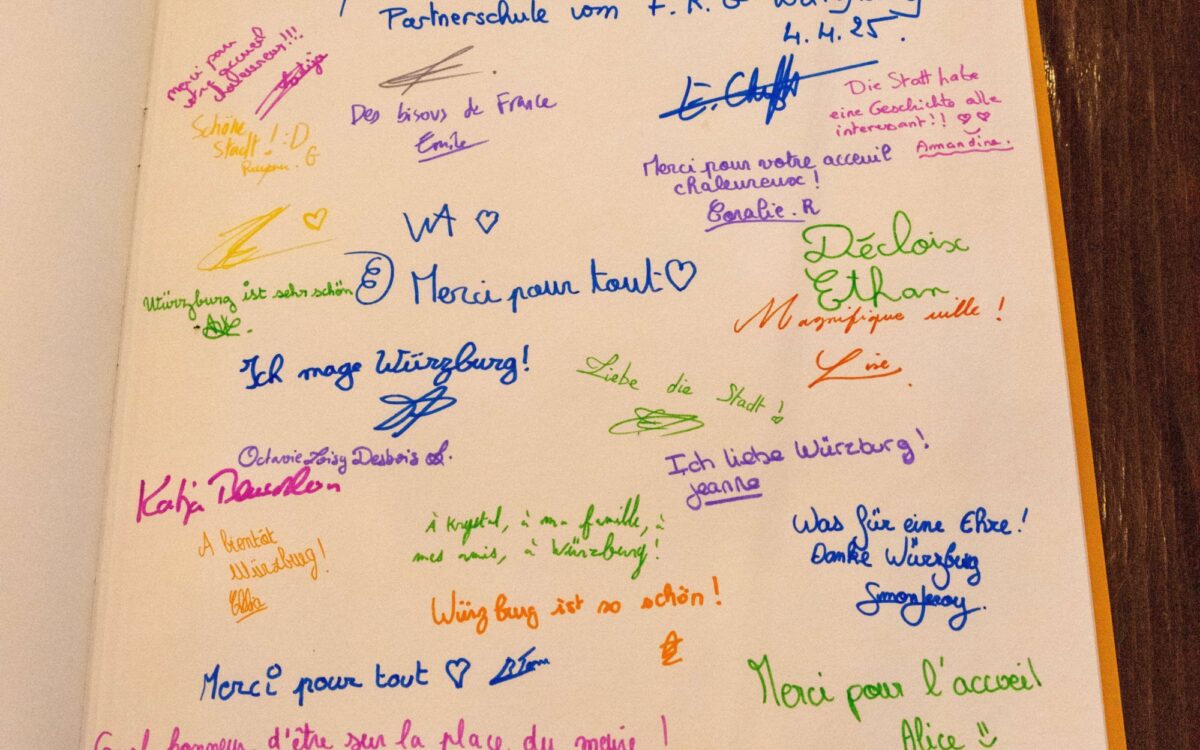 Partnerschule vom F.R.G Würzburg
4.4.25.
merci pour
votre accueil
chaleureux!!!
Des bisous de France
Emile
Die Statt habe
eine Geschichte alle
interessant!! ♡♡
Amandine.
Schöne
Stadt! :D
Merci pour votre acceuil
chaleureux!
Coralie. R
♡
WA ♡
Décloix
Ethan
Würzburg ist sehr schön
Merci pour tout ♡
Magnifique ville !
Lise
Ich mage Würzburg!
Liebe die Stadt !
Octavie Loisy Desbois
Ich liebe Würzburg!
Jeanne
Katja
A bientôt
Würzburg!
à Krystel, à ma famille, à
mes amis, à Würzburg!
Was für eine Ehre!
Danke Würzburg
Simon Jeroy.
Würzburg ist so schön !
Merci pour tout ♡
Merci pour l'accueil
Alice
Quel honneur d'être sur la place du maire !